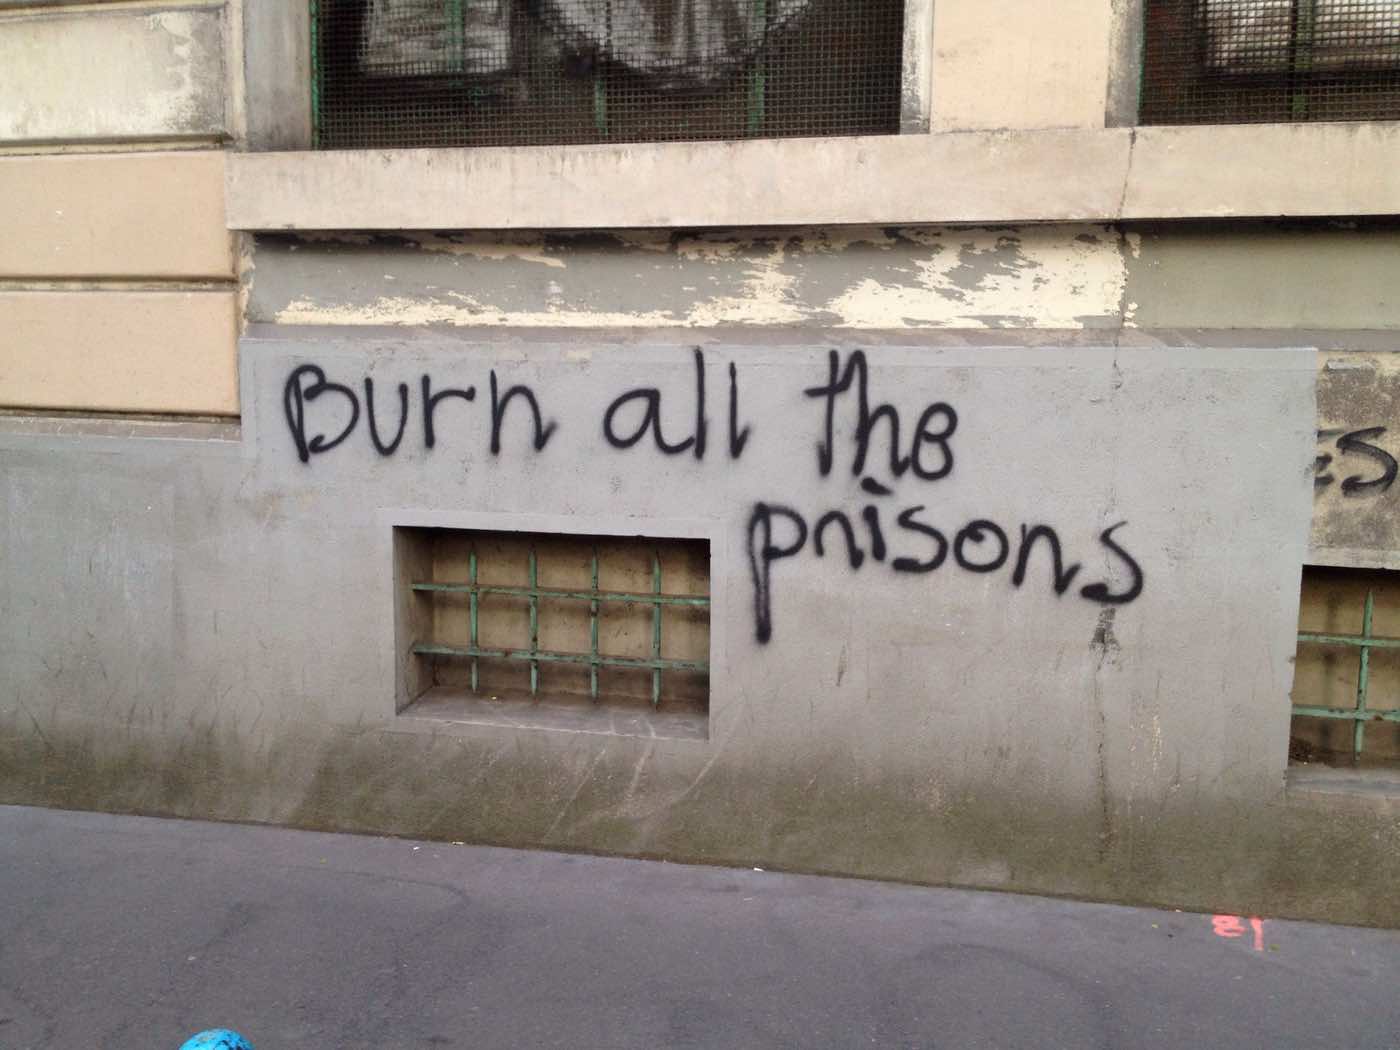 Burn all the
prisons
ES